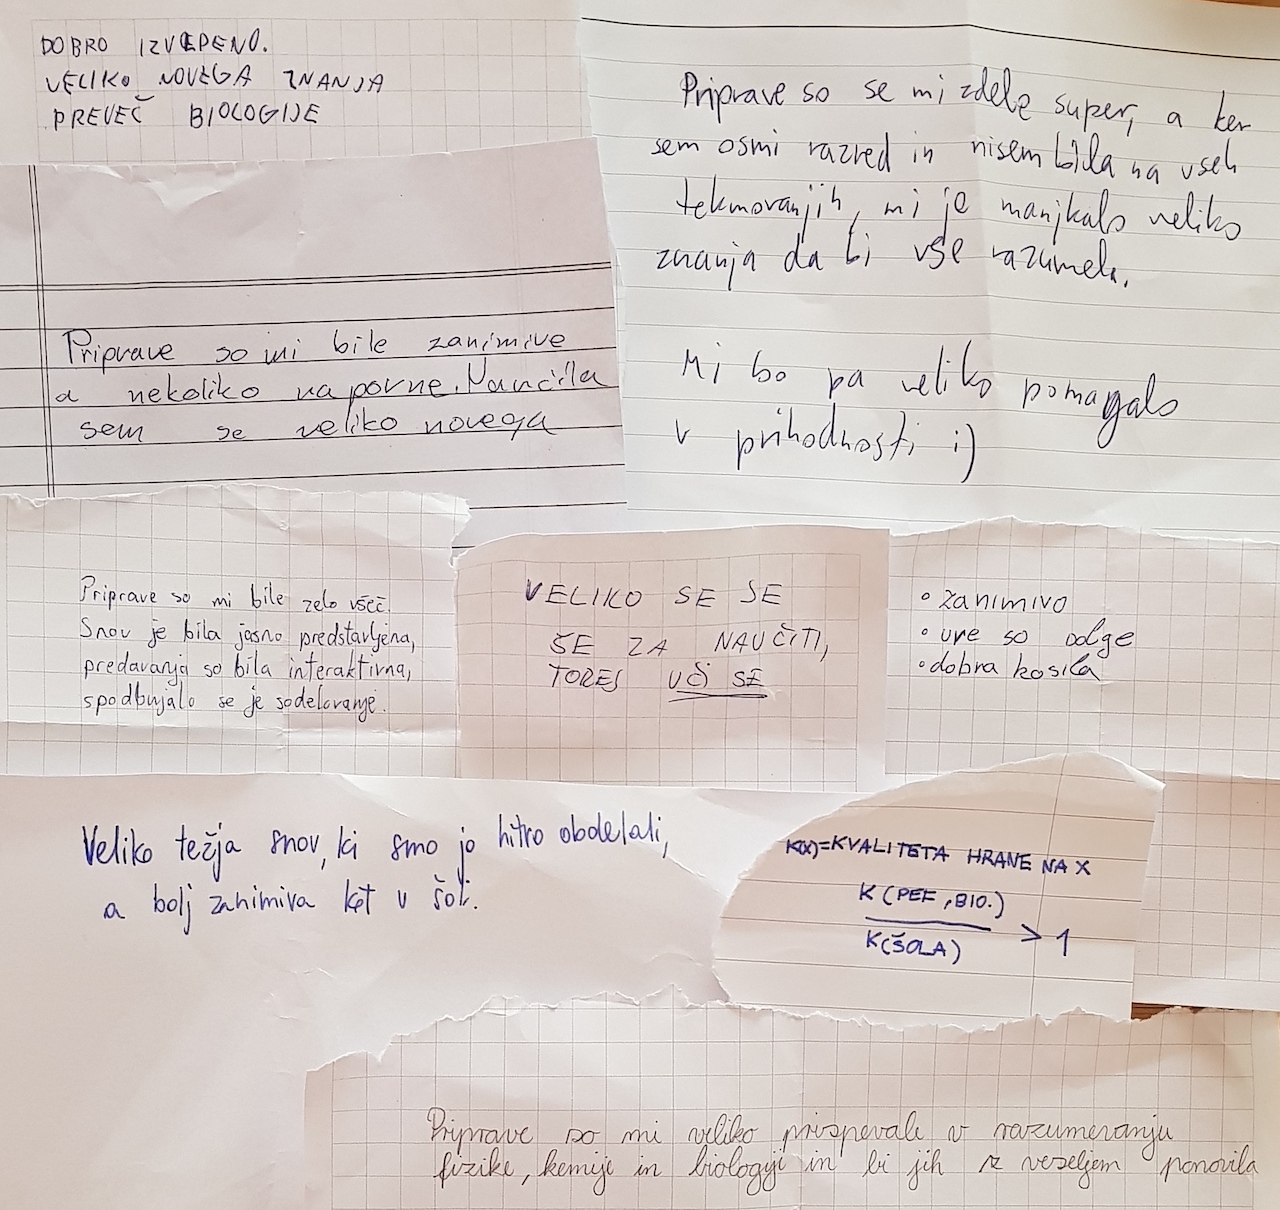 DOBRO IZVEDENO.
VELIKO NOVEGA ZNANJA
PREVEČ BIOLOGIJE
Priprave so se mi zdele super, a ker
sem osmi razred in nisem bila na vseh
tekmovanjih, mi je manjkalo veliko
znanja da bi vse razumela.
Mi bo pa veliko pomagalo
v prihodnosti :)
Priprave so mi bile zanimive
a nekoliko naporne. Naučila
sem se veliko novega
Priprave so mi bile zelo všeč.
Snov je bila jasno predstavljena,
predavanja so bila interaktivna,
spodbujalo se je sodelovanje.
VELIKO SE JE
ŠE ZA NAUČITI,
TOREJ UČI SE
• zanimivo
• ure so dolge
• dobra kosila
Veliko težja snov, ki smo jo hitro obdelali,
a bolj zanimiva kot v šoli.
K(X)=KVALITETA HRANE NA X
K(PEF, BIO.)
K(ŠOLA)
> 1
Priprave so mi veliko prispevale v razumevanju
fizike, kemije in biologije in bi jih z veseljem ponovila